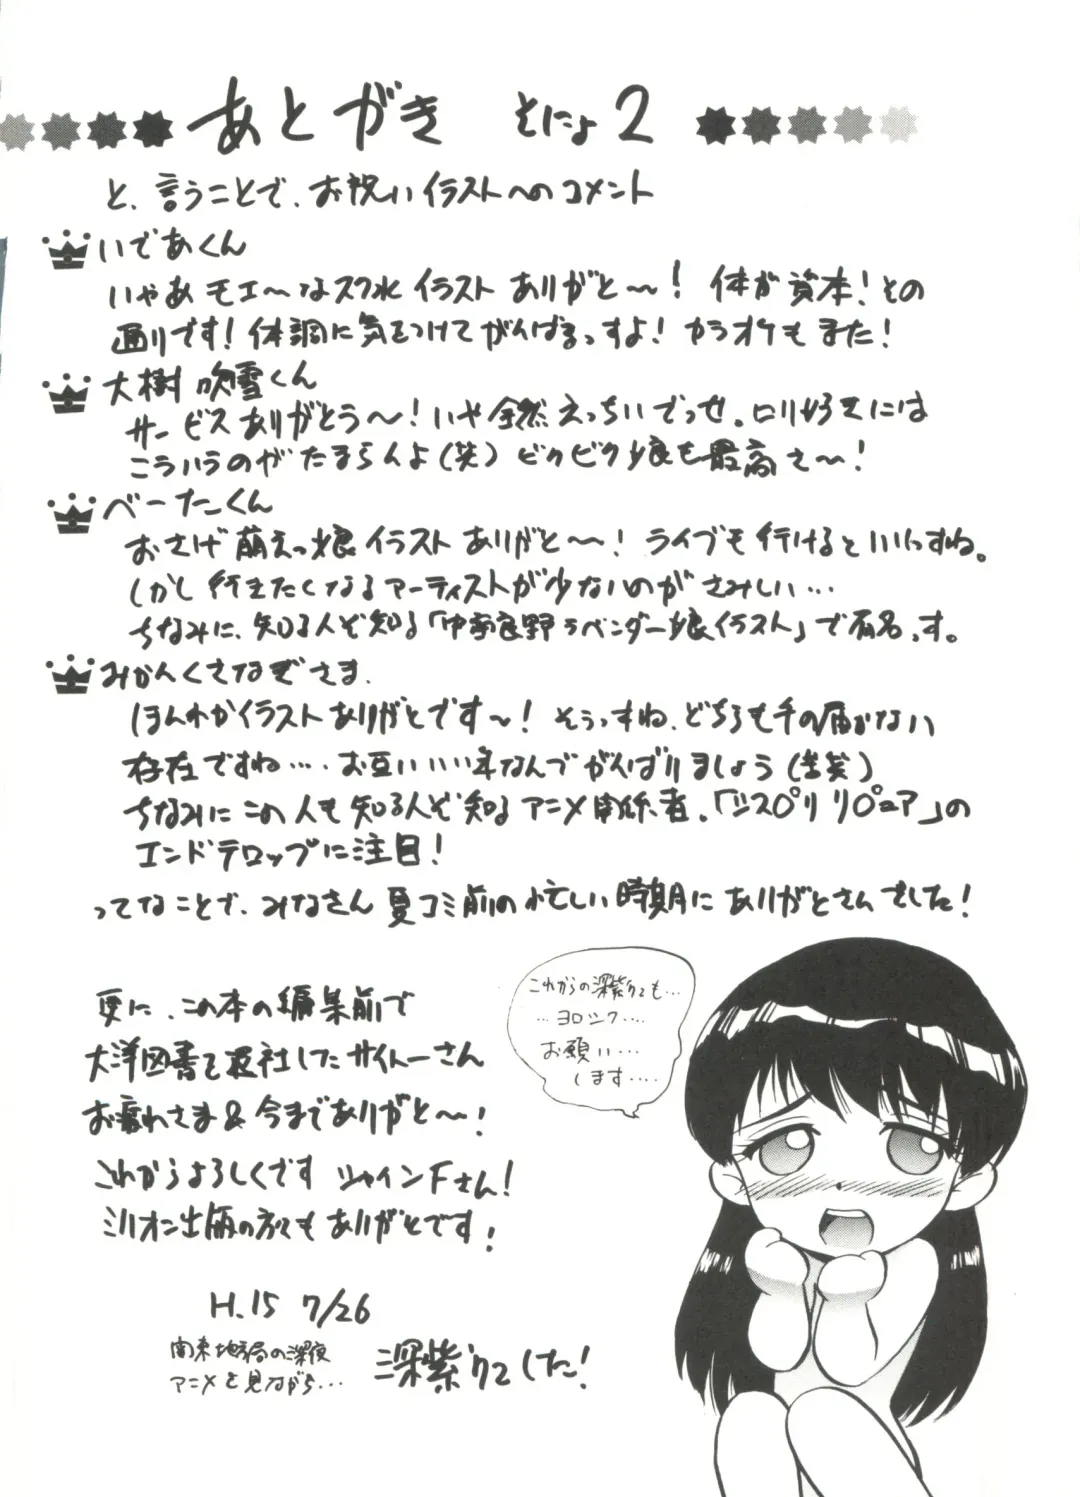 あとがき そにょ2
と、言うことで、お祝いイラストへのコメント
いであくん
いやあモエ〜なスク水イラストありがと〜！体が資本！との
通りです！体調に気をつけてがんばまっすよ！カラオケもまた！
大樹吹雪くん
サービスありがとう〜！いや全然えっちいでっせ。ロリ好きには
こういうのがたまらんよ(笑)ビクビク娘も最高さ〜！
べーたくん
おさげ萌えっ娘イラストありがと〜〜！ライブも行けるといいっすね。
しかし行きたくなるアーティストが少ないのがさみしい…
ちなみに、知る人ぞ知る「中富良野ラベンダー娘イラスト」で有名っす。
みかんくさなぎさま
ほんわかイラストありがとです〜！そうっすね、どちらも手の届かない
存在ですね…、お互いいい年なんでがんばりましょう(苦笑)
ちなみにこの人も知る人ぞ知るアニメ関係者。「ジスプリ リピュア」の
エンドテロップに注目！
ってなことで、みなさん夏コミ前の忙しい時期にありがとさんでした！
更に、この本の編集前で
大洋図書を退社したサイトーさん
お疲れさま&今までありがと〜！
これからよろしくです シャインFさん！
ミリオン出版の方々もありがとです！
これからの深紫クンも…
…ヨロシク…
お願い…
します…
H.15 7/26
関東地方局の深夜
アニメを見ながら…
深紫クンでした！